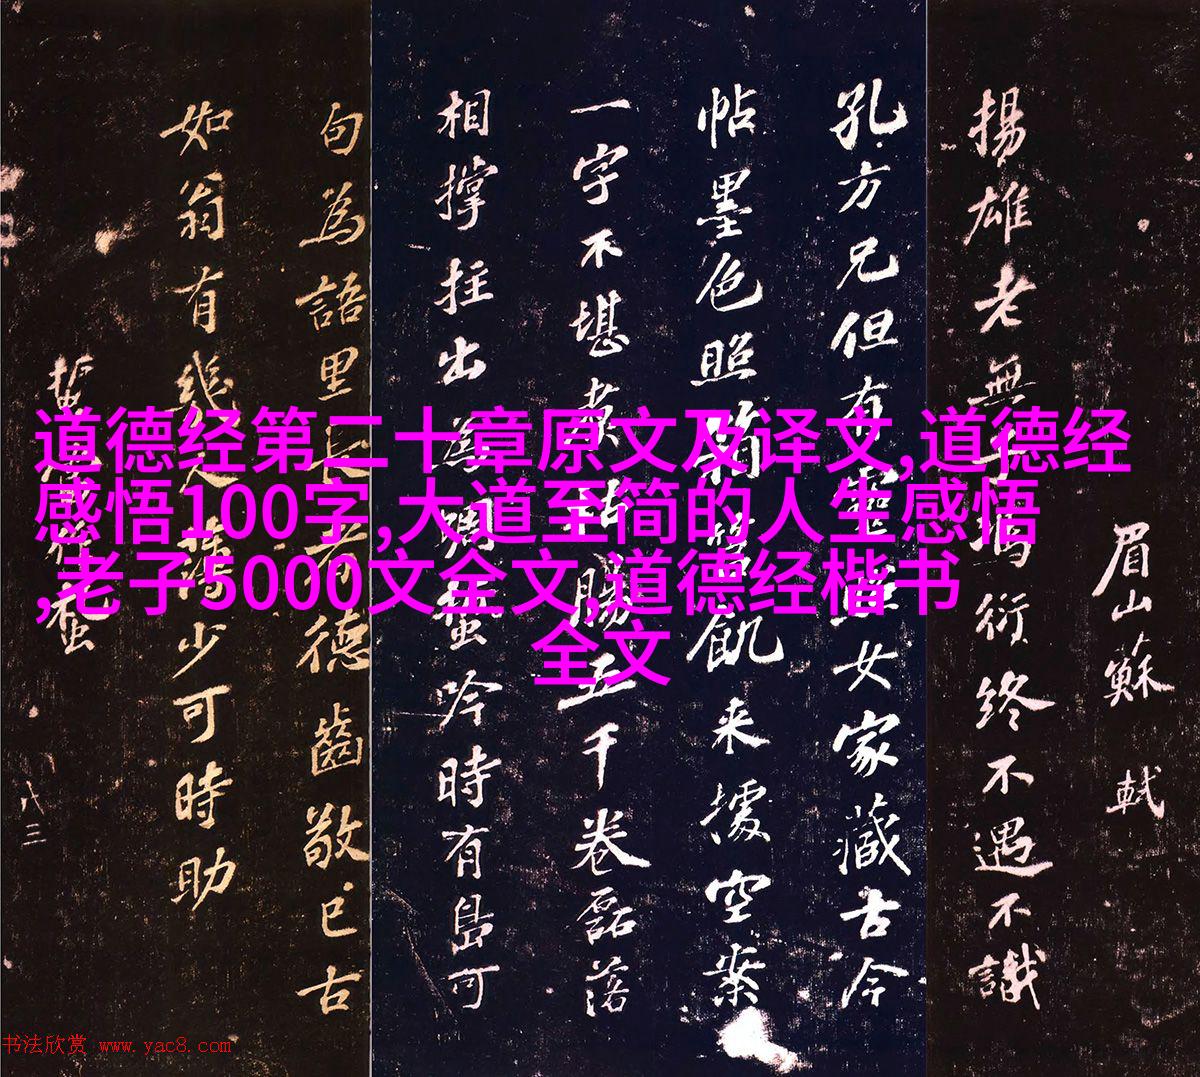 眉山蘇軾
揚雄老無子馮衍終不遇不識
孔方兄但有靈照女家藏古今
帖墨色照箱筥飢来據空案
一字不堪煮枯腸五千卷磊落
相撑拄出為蜩蛩吟時有島可
句為語里長者德齒敬已古
如翁有幾人薄少可時助
八三
道德经第二十章原文及译文,道德经
感悟100字,大道至简的人生感悟
,老子5000文全文,道德经楷书
全文
书法欣赏 www.yac8.com